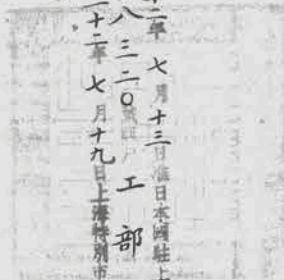 二年七月十三日准日本國駐上
八三二〇號四戶工部
二十二年七月十九日上海特別市